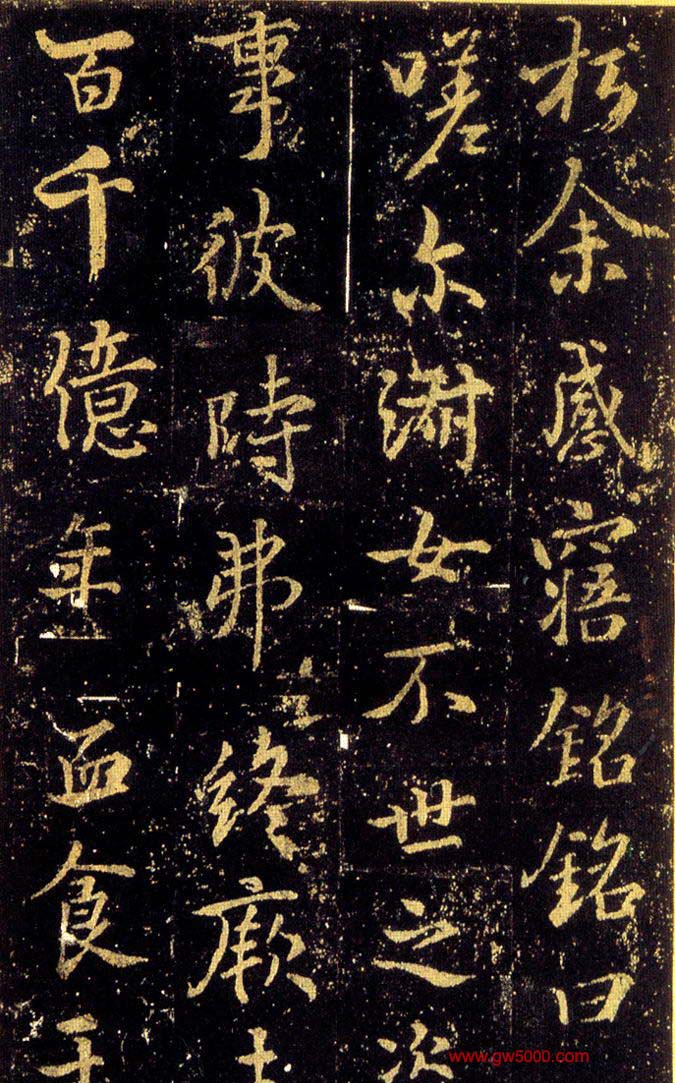 扵余感寤銘銘曰
嗟尓淑女不世之
事彼時弗終厥
百千億年血食于
www.gw5000.com